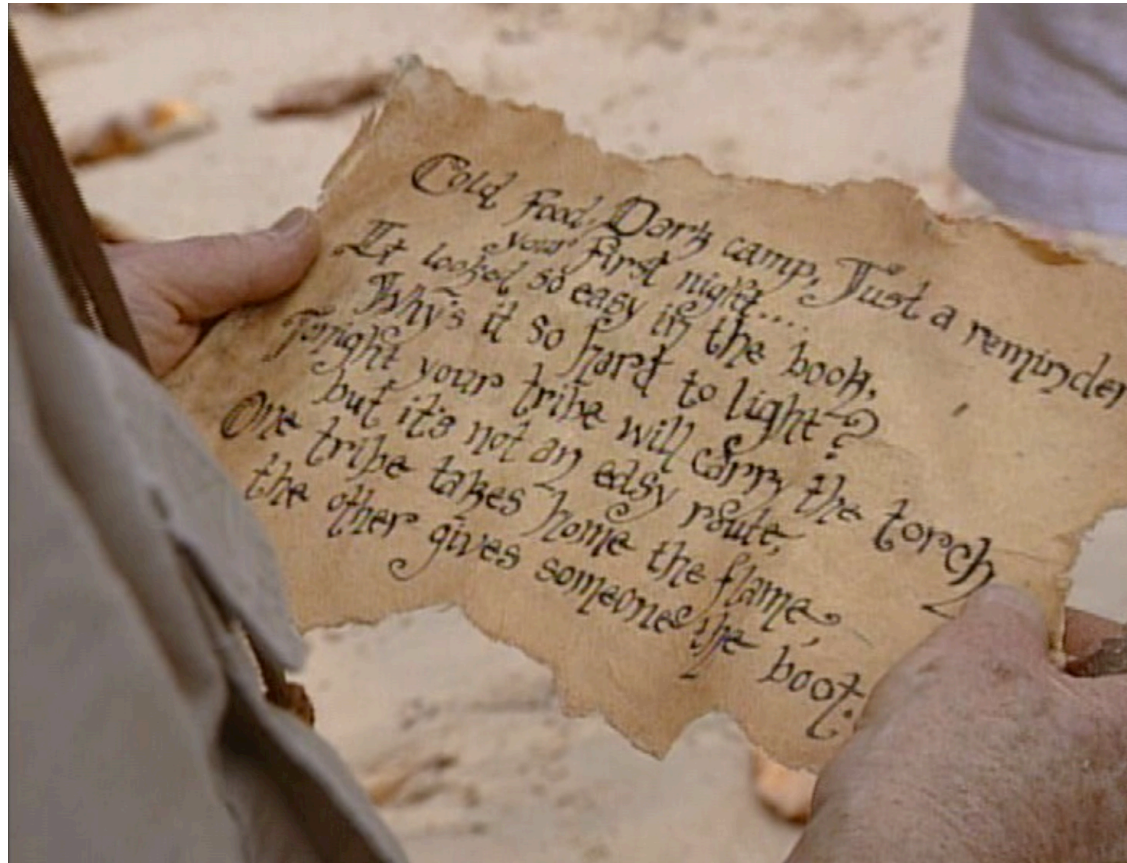 Cold food, Dark camp, Just a reminder
your first night....
It looked so easy in the book,
Why's it so hard to light?
Tonight your tribe will carry the torch
but it's not an easy route,
One tribe takes home the flame,
the other gives someone the boot.